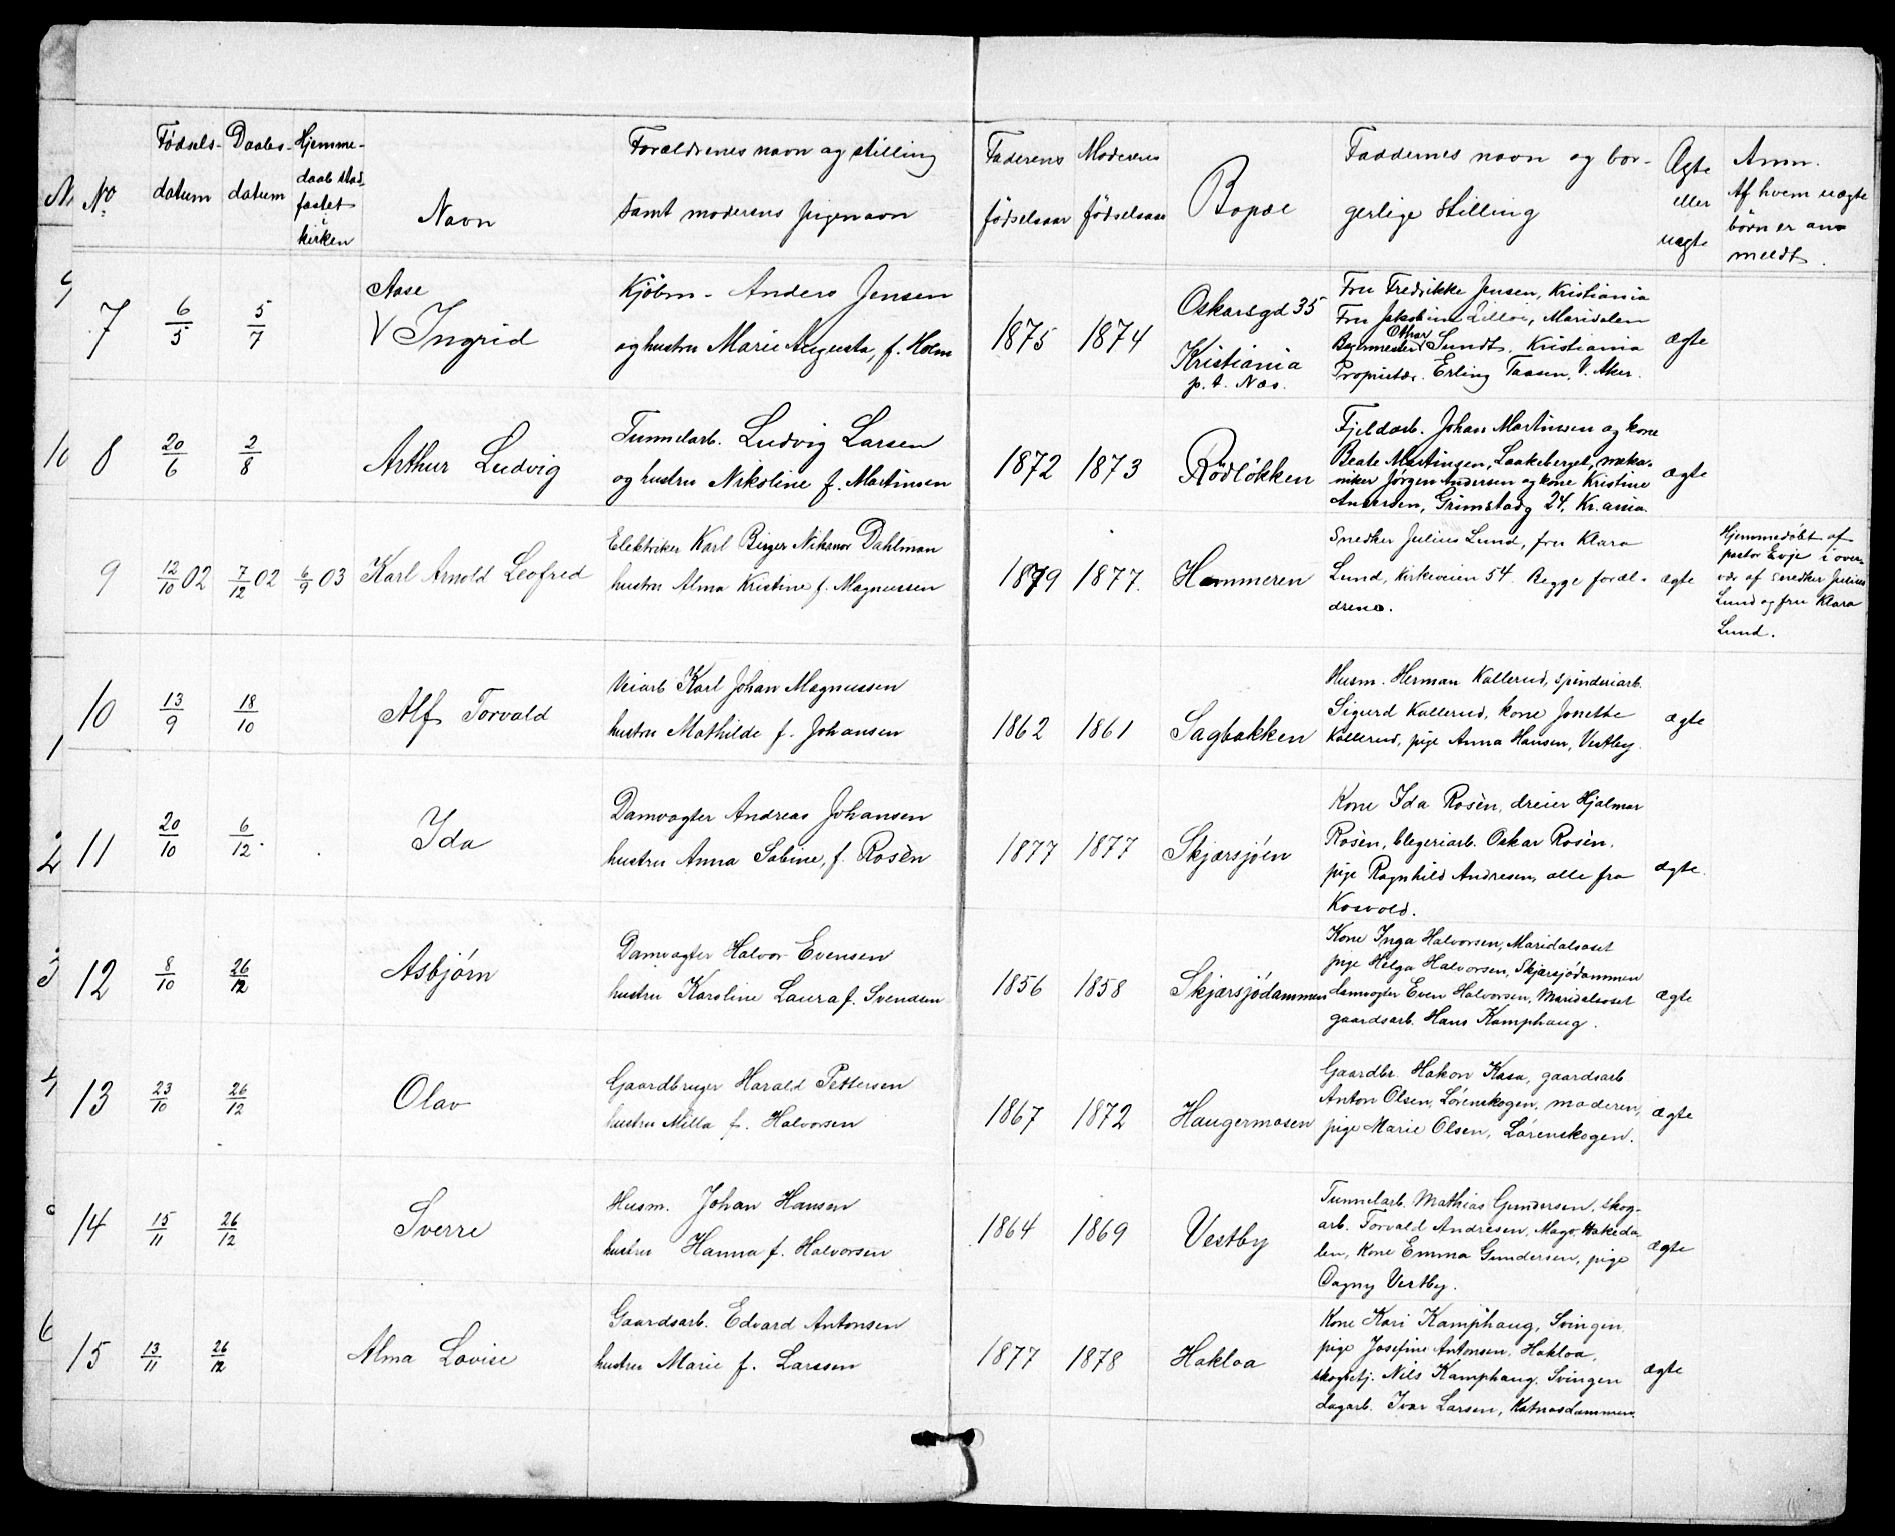 No
Fødsels-
datum
Daabs-
datum
Hjemme-
daab stad-
fæstet
i
kirken
Navn
Forældrenes navn og stilling
samt moderens pigenavn
Faderens
fødselsaar
Moderens
fødselsaar
Bopæl
Faddernes navn og bor-
gerlige stilling
Ægte
eller
uægte
Anm.
Af hvem uægte
børn er an-
meldt.
9
7
6/5
5/7
Aase
V Ingrid
Kjøbm. Anders Jensen
og hustru Marie Augusta, f. Holm
1875
1874
Oskarsgd 35
Kristiania
p. t. Næs.
Fru Fredrikke Jensen, Kristiania
Fru Jakobine Lilloe, Maridalen
Othar
Bagermester Sundt, Kristiania
Proprietær Erling Taasen, V. Aker.
ægte
10
8
20/6
2/8
Arthur Ludvig
Tunnelarb. Ludvig Larsen
og hustru Nikoline f. Martinsen
1872
1873
Rödlökken
Fjeldarb. Johan Martinsen og kone
Beate Martinsen, Laakeberget, meka-
niker Jørgen Andersen og kone Kristine
Andersen, Grimstadg 24, Kr.ania.
ægte
9
12/10 02
7/12 02
6/9 03
Karl Arnold Leofred
Elektriker Karl Birger Nikanor Dahlman
hustru Alma Kristine f. Magnussen
1879
1877.
Hammeren
Snedker Julius Lund, fru Klara
Lund, Kirkeveien 54. Begge foræl-
drene.
ægte
Hjemmedøbt af
pastor Evje i over-
vær af snedker Julius
Lund og fru Klara
Lund.
1
10
13/9
18/10
Alf Torvald
Veiarb Karl Johan Magnussen
hustru Mathilde f. Johansen
1862
1861
Sagbakken
Husm. Herman Kallerud, spinderiarb.
Sigurd Kallerud, kone Jonette
Kallerud, pige Anna Hansen, Vestby.
ægte
2
11
20/10
6/12.
Ida
Damvogter Andreas Johansen
hustru Anna Sabine, f. Rosèn
1877
1877
Skjærsjøen
Kone Ida Rosèn, dreier Hjalmar
Rosèn, blegeriarb. Oskar Rosèn,
pige Ragnhild Andresen, alle fra
Kosvold.
ægte.
3
12
8/10
26/12
Asbjørn
Damvogter Halvor Evensen
hustru Karoline Laura f. Svendsen
1856
1858
Skjærsjödammen
Kone Inga Halvorsen, Maridalsoset
pige Helga Halvorsen, Skjærsjödammen
damvogter Even Halvorsen, Maridalsoset
gaardsarb. Hans Kamphaug.
ægte
4
13
23/10
26/12
Olav
Gaardbruger Harald Pettersen
hustru Milla f. Halvorsen
1867
1872
Haugermosen
Gaardbr. Hakon Kasa, gaardsarb
Anton Olsen, Lørenskogen, moderen,
pige Marie Olsen, Lørenskogen.
ægte
14
15/11
26/12
Sverre
Husm. Johan Hansen
hustru Hanna f. Halvorsen
1864
1869
Vestby
Tunnelarb. Mathias Gundersen, skog-
arb. Torvald Andresen, Mago, Hakeda-
len, kone Emma Gundersen, pige
Dagny Vestby.
ægte
6
15
13/11
26/12
Alma Lovise
Gaardsarb. Edvard Antonsen
hustru Marie f. Larssen
1877
1878
Hakloa
Kone Kari Kamphaug, Svingen,
pige Josefine Antonsen, Hakloa,
skogbetj. Nils Kamphaug, Svingen
dagarb. Ivar Larsen, Katnosdammen.
ægte